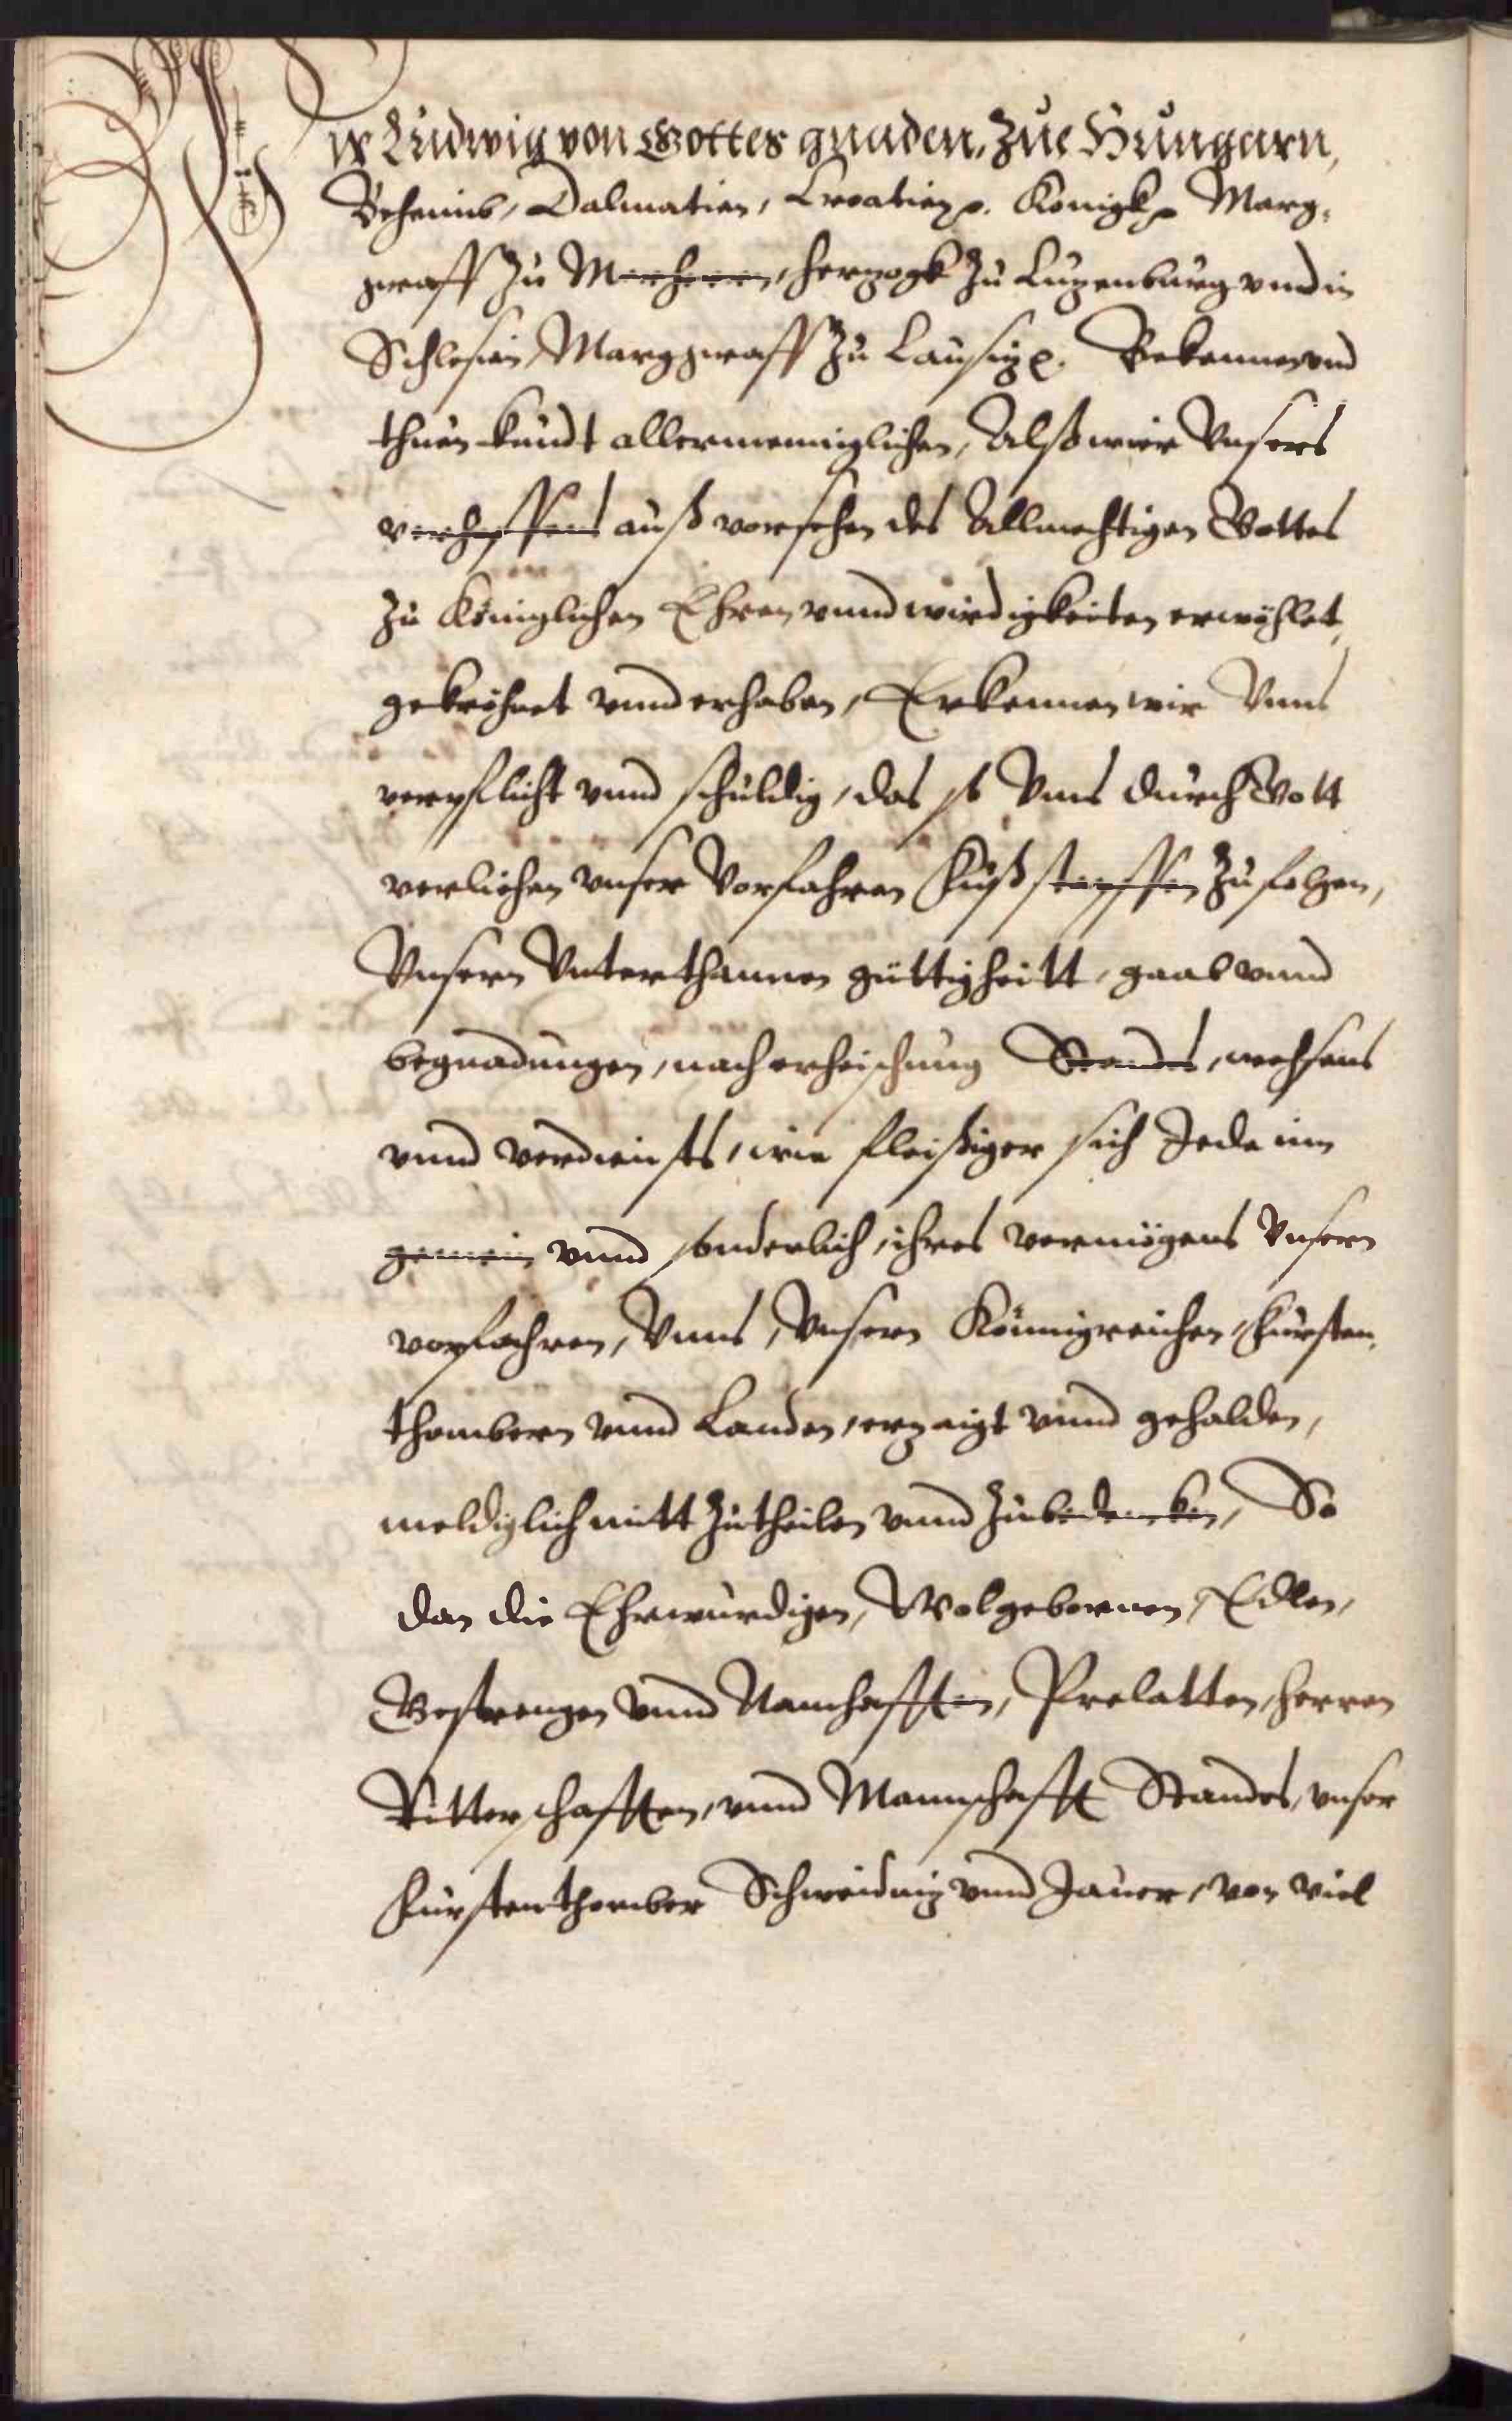 Wir Ludwig von Gottes gnaden, Zue Hungarn,
Behemib, Dalmatien, Croatien p. Konigk p Marg-
graff zu Merhern, herzogk zu Luzenburg vnd in
Schlesien, Marggraff zu Lausiz p. Bekennen vnd
thuen kundt allermenniglichen, Alß wier Vnsers
verhoffens auß vorsehen des Allmechtigen Gottes
zu Königlichen Ehren vnnd wirdigkeiten erwöhlet,
gekröhnet vnnd erhaben, Erkennen wir Vnns
verpflicht vnnd schuldig, das so Vnns durch Gott
verliehen vnser Vorfahren Fußstapffen zu folgen,
Vnsern Vnterthannen güttigheitt, gaab vnnd
begnadungen, nach erheischung Standes, wehsens
vnnd verdiensts, wie fleißiger sich Jede inn
gemein vnnd sonderlich, ihres vermögens Vnsern
vorfahren, Vnns, Vnsern Königreichen, Fürsten-
thombern vnnd Landen, erzaigt vnnd gehalden,
meldiglich mitt zutheilen vnnd zubedencken, So
dan die Ehrwürdigen, Wolgebornen, Edlen,
Gestrengen vnnd Namhafften, Prelatten, Herren
Ritterschafften, vnnd Mannschafft Standes, vnser
Fürstenthomber Schweidniz vnnd Jauer, von viel